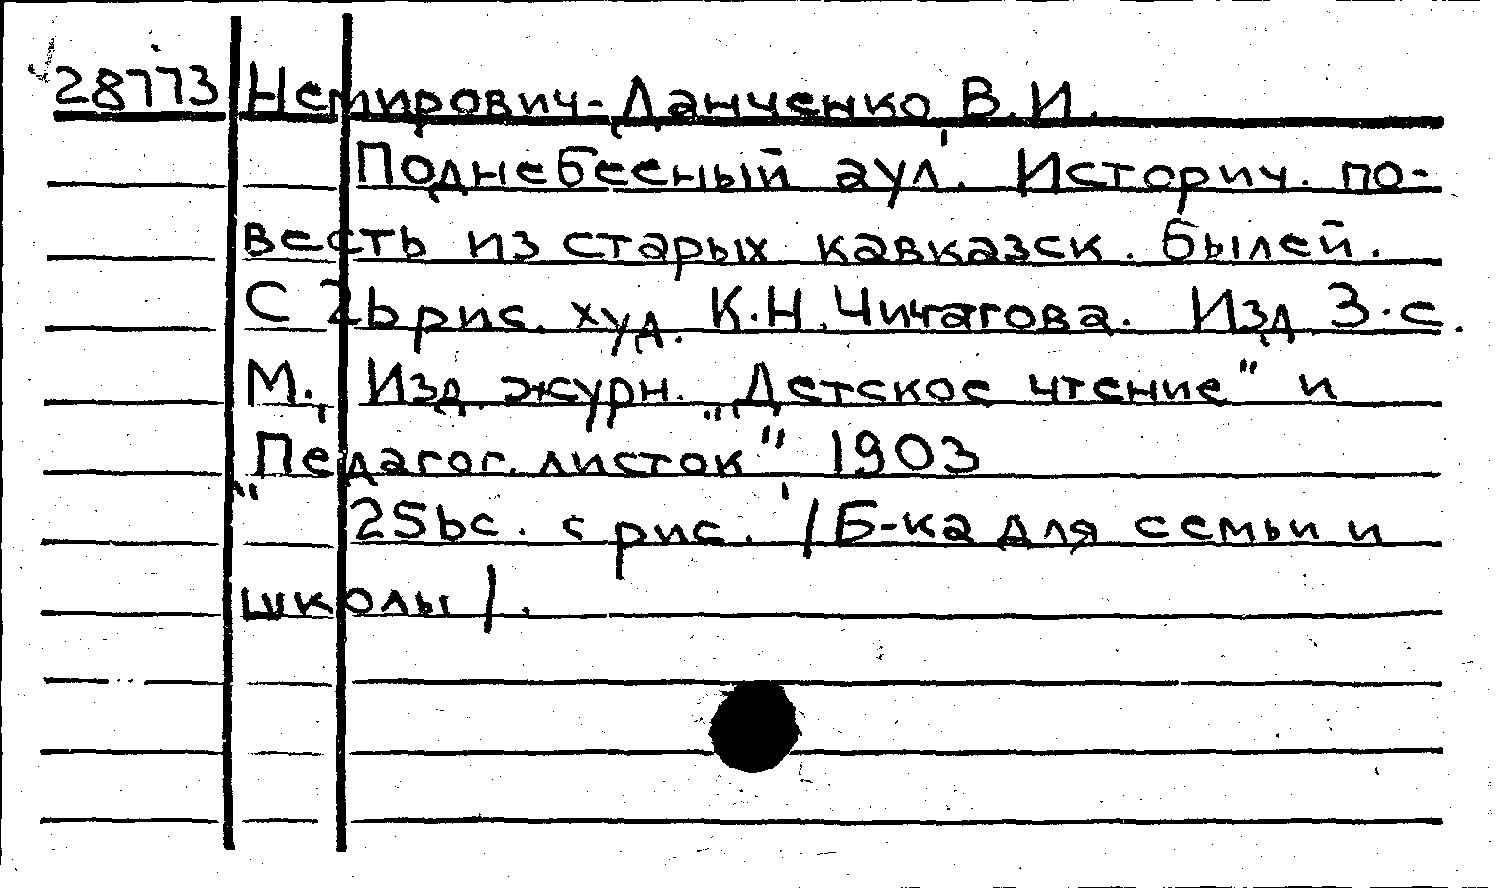 28773 Немирович-Данченко, В.И.
Поднебесный аул. Историч. по-
весть из старых кавказск. былей.
С 26 рис. худ. К.Н. Чичагова. Изд 3-е.
М., Изд. журн. „Детское чтение" и
„Педагог. листок", 1903
256 с. с рис. /Б-ка для семьи и
школы/.